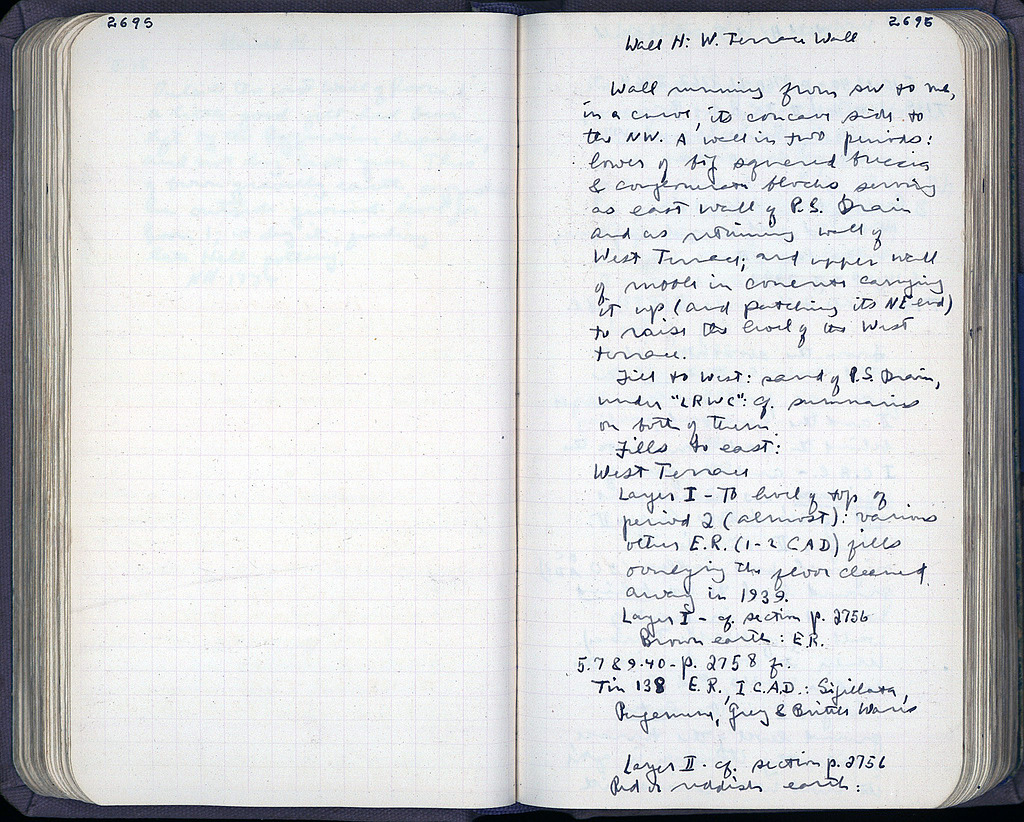 2695
2696
Wall H: W. Terrace Wall
Wall running from SW to NE,
in a curve, its concave side to
the NW. A wall in two periods:
lower of big squared breccia
& conglomerate blocks serving
as east wall of P.S. Drain
and as retaining wall of
West Terrace; and upper wall
of rubble in concrete carrying
it up (and patching its NE end)
to raise the level of the West
terrace.
Fill to West: sand of P.S. Drain,
under "LRWC": cf. summaries
on both of them.
Fills to east:
West Terrace
Layer I - To level of top of
period 2 (almost): various
other E.R. (1-2 C AD) fills
overlying the floor cleared
away in 1939.
Layer I - cf. section p. 2756
Brown earth: E.R.
5.7 8 9.40 - p. 2758 f.
Tin 138 E.R., I C.A.D.: Sigillata,
Pergamene, Grey & Brittle Wares
Layer II - cf. section p. 2756
Red or reddish earth: